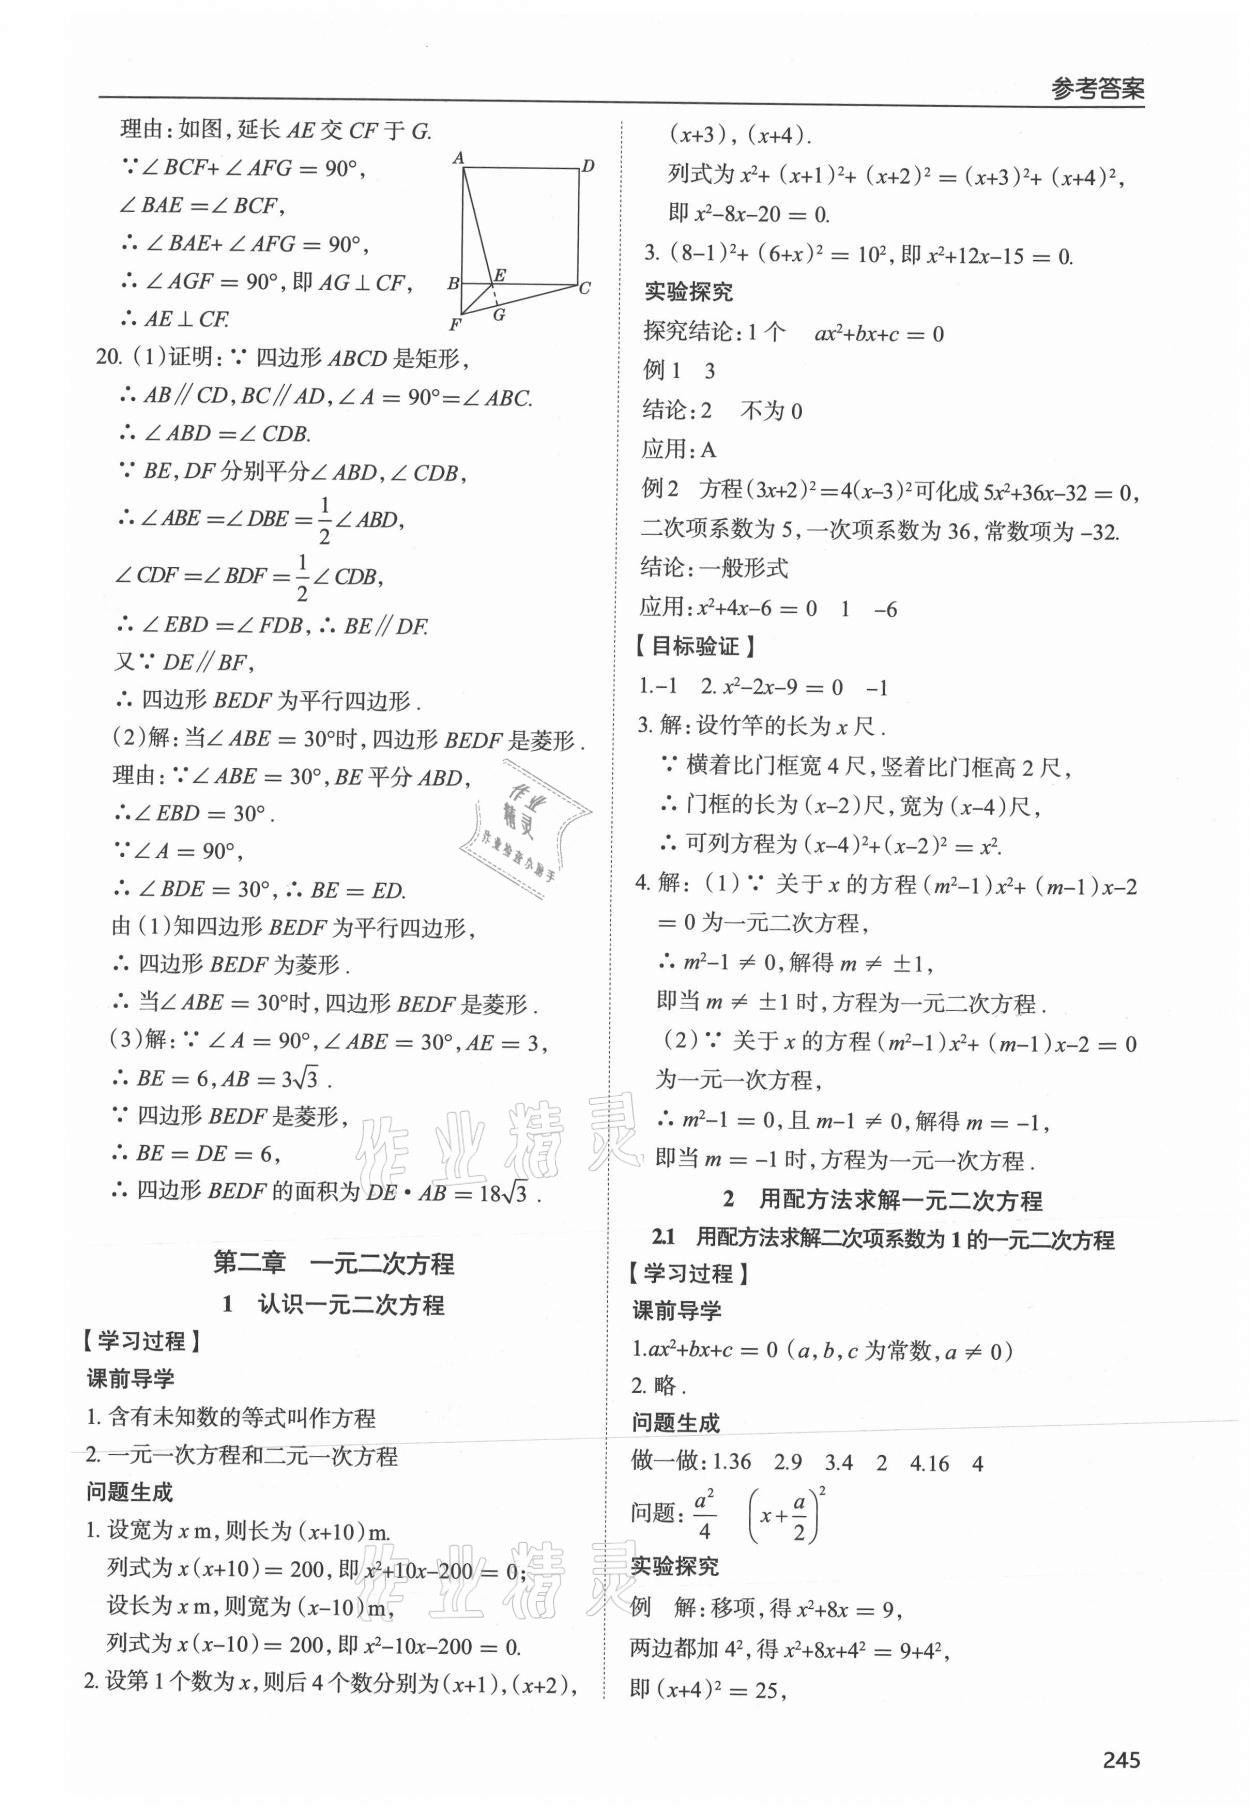 参考答案
理由:如图,延长 AE 交 CF 于 G.
∵∠BCF+∠AFG = 90°,
∠BAE =∠BCF,
∴ ∠BAE+∠AFG = 90°,
∴ ∠AGF = 90°,即 AG⊥CF,
∴ AE⊥CF.
A
D
B
E
C
F
G
20. (1)证明:∵ 四边形 ABCD 是矩形,
∴ AB∥CD,BC∥AD,∠A = 90°=∠ABC.
∴ ∠ABD =∠CDB.
∵ BE,DF 分别平分∠ABD,∠CDB,
∴∠ABE =∠DBE = 1/2∠ABD,
∠CDF =∠BDF = 1/2∠CDB,
∴ ∠EBD =∠FDB,∴ BE∥DF.
又∵ DE∥BF,
∴ 四边形 BEDF 为平行四边形.
(2)解:当∠ABE = 30°时,四边形 BEDF 是菱形.
理由:∵∠ABE = 30°,BE 平分 ABD,
∴∠EBD = 30°.
∵∠A = 90°,
∴ ∠BDE = 30°,∴ BE = ED.
由(1)知四边形 BEDF 为平行四边形,
∴ 四边形 BEDF 为菱形.
∴ 当∠ABE = 30°时,四边形 BEDF 是菱形.
(3)解:∵ ∠A = 90°,∠ABE = 30°,AE = 3,
∴ BE = 6,AB = 3√3.
∵ 四边形 BEDF 是菱形,
∴ BE = DE = 6,
∴ 四边形 BEDF 的面积为 DE·AB = 18√3.
第二章 一元二次方程
1 认识一元二次方程
【学习过程】
课前导学
1. 含有未知数的等式叫作方程
2. 一元一次方程和二元一次方程
问题生成
1. 设宽为 x m,则长为(x+10)m.
列式为 x(x+10)= 200,即 x²+10x-200 = 0;
设长为 x m,则宽为(x-10)m,
列式为 x(x-10)= 200,即 x²-10x-200 = 0.
2. 设第 1 个数为 x,则后 4 个数分别为(x+1),(x+2),
(x+3),(x+4).
列式为 x²+(x+1)²+(x+2)² = (x+3)²+(x+4)²,
即 x²-8x-20 = 0.
3. (8-1)²+(6+x)² = 10²,即 x²+12x-15 = 0.
实验探究
探究结论:1 个 ax²+bx+c = 0
例 1 3
结论:2 不为 0
应用:A
例 2 方程(3x+2)²=4(x-3)²可化成 5x²+36x-32 = 0,
二次项系数为 5,一次项系数为 36,常数项为 -32.
结论:一般形式
应用:x²+4x-6 = 0 1 -6
【目标验证】
1.-1 2. x²-2x-9 = 0 -1
3. 解:设竹竿的长为 x 尺.
∵ 横着比门框宽 4 尺,竖着比门框高 2 尺,
∴ 门框的长为(x-2)尺,宽为(x-4)尺,
∴ 可列方程为(x-4)²+(x-2)² = x².
4. 解:(1)∵ 关于 x 的方程(m²-1)x²+(m-1)x-2
= 0 为一元二次方程,
∴ m²-1 ≠ 0,解得 m ≠ ±1,
即当 m ≠ ±1 时,方程为一元二次方程.
(2)∵ 关于 x 的方程(m²-1)x²+(m-1)x-2 = 0
为一元一次方程,
∴ m²-1 = 0,且 m-1 ≠ 0,解得 m = -1,
即当 m = -1 时,方程为一元一次方程.
2 用配方法求解一元二次方程
2.1 用配方法求解二次项系数为 1 的一元二次方程
【学习过程】
课前导学
1.ax²+bx+c = 0(a,b,c 为常数,a ≠ 0)
2. 略.
问题生成
做一做:1.36 2.9 3.4 2 4.16 4
问题:a²/4 (x+a/2)²
实验探究
例 解:移项,得 x²+8x = 9,
两边都加 4²,得 x²+8x+4² = 9+4²,
即(x+4)² = 25,
作业
精灵
作业检查小助手
作业精灵
作业精灵
245